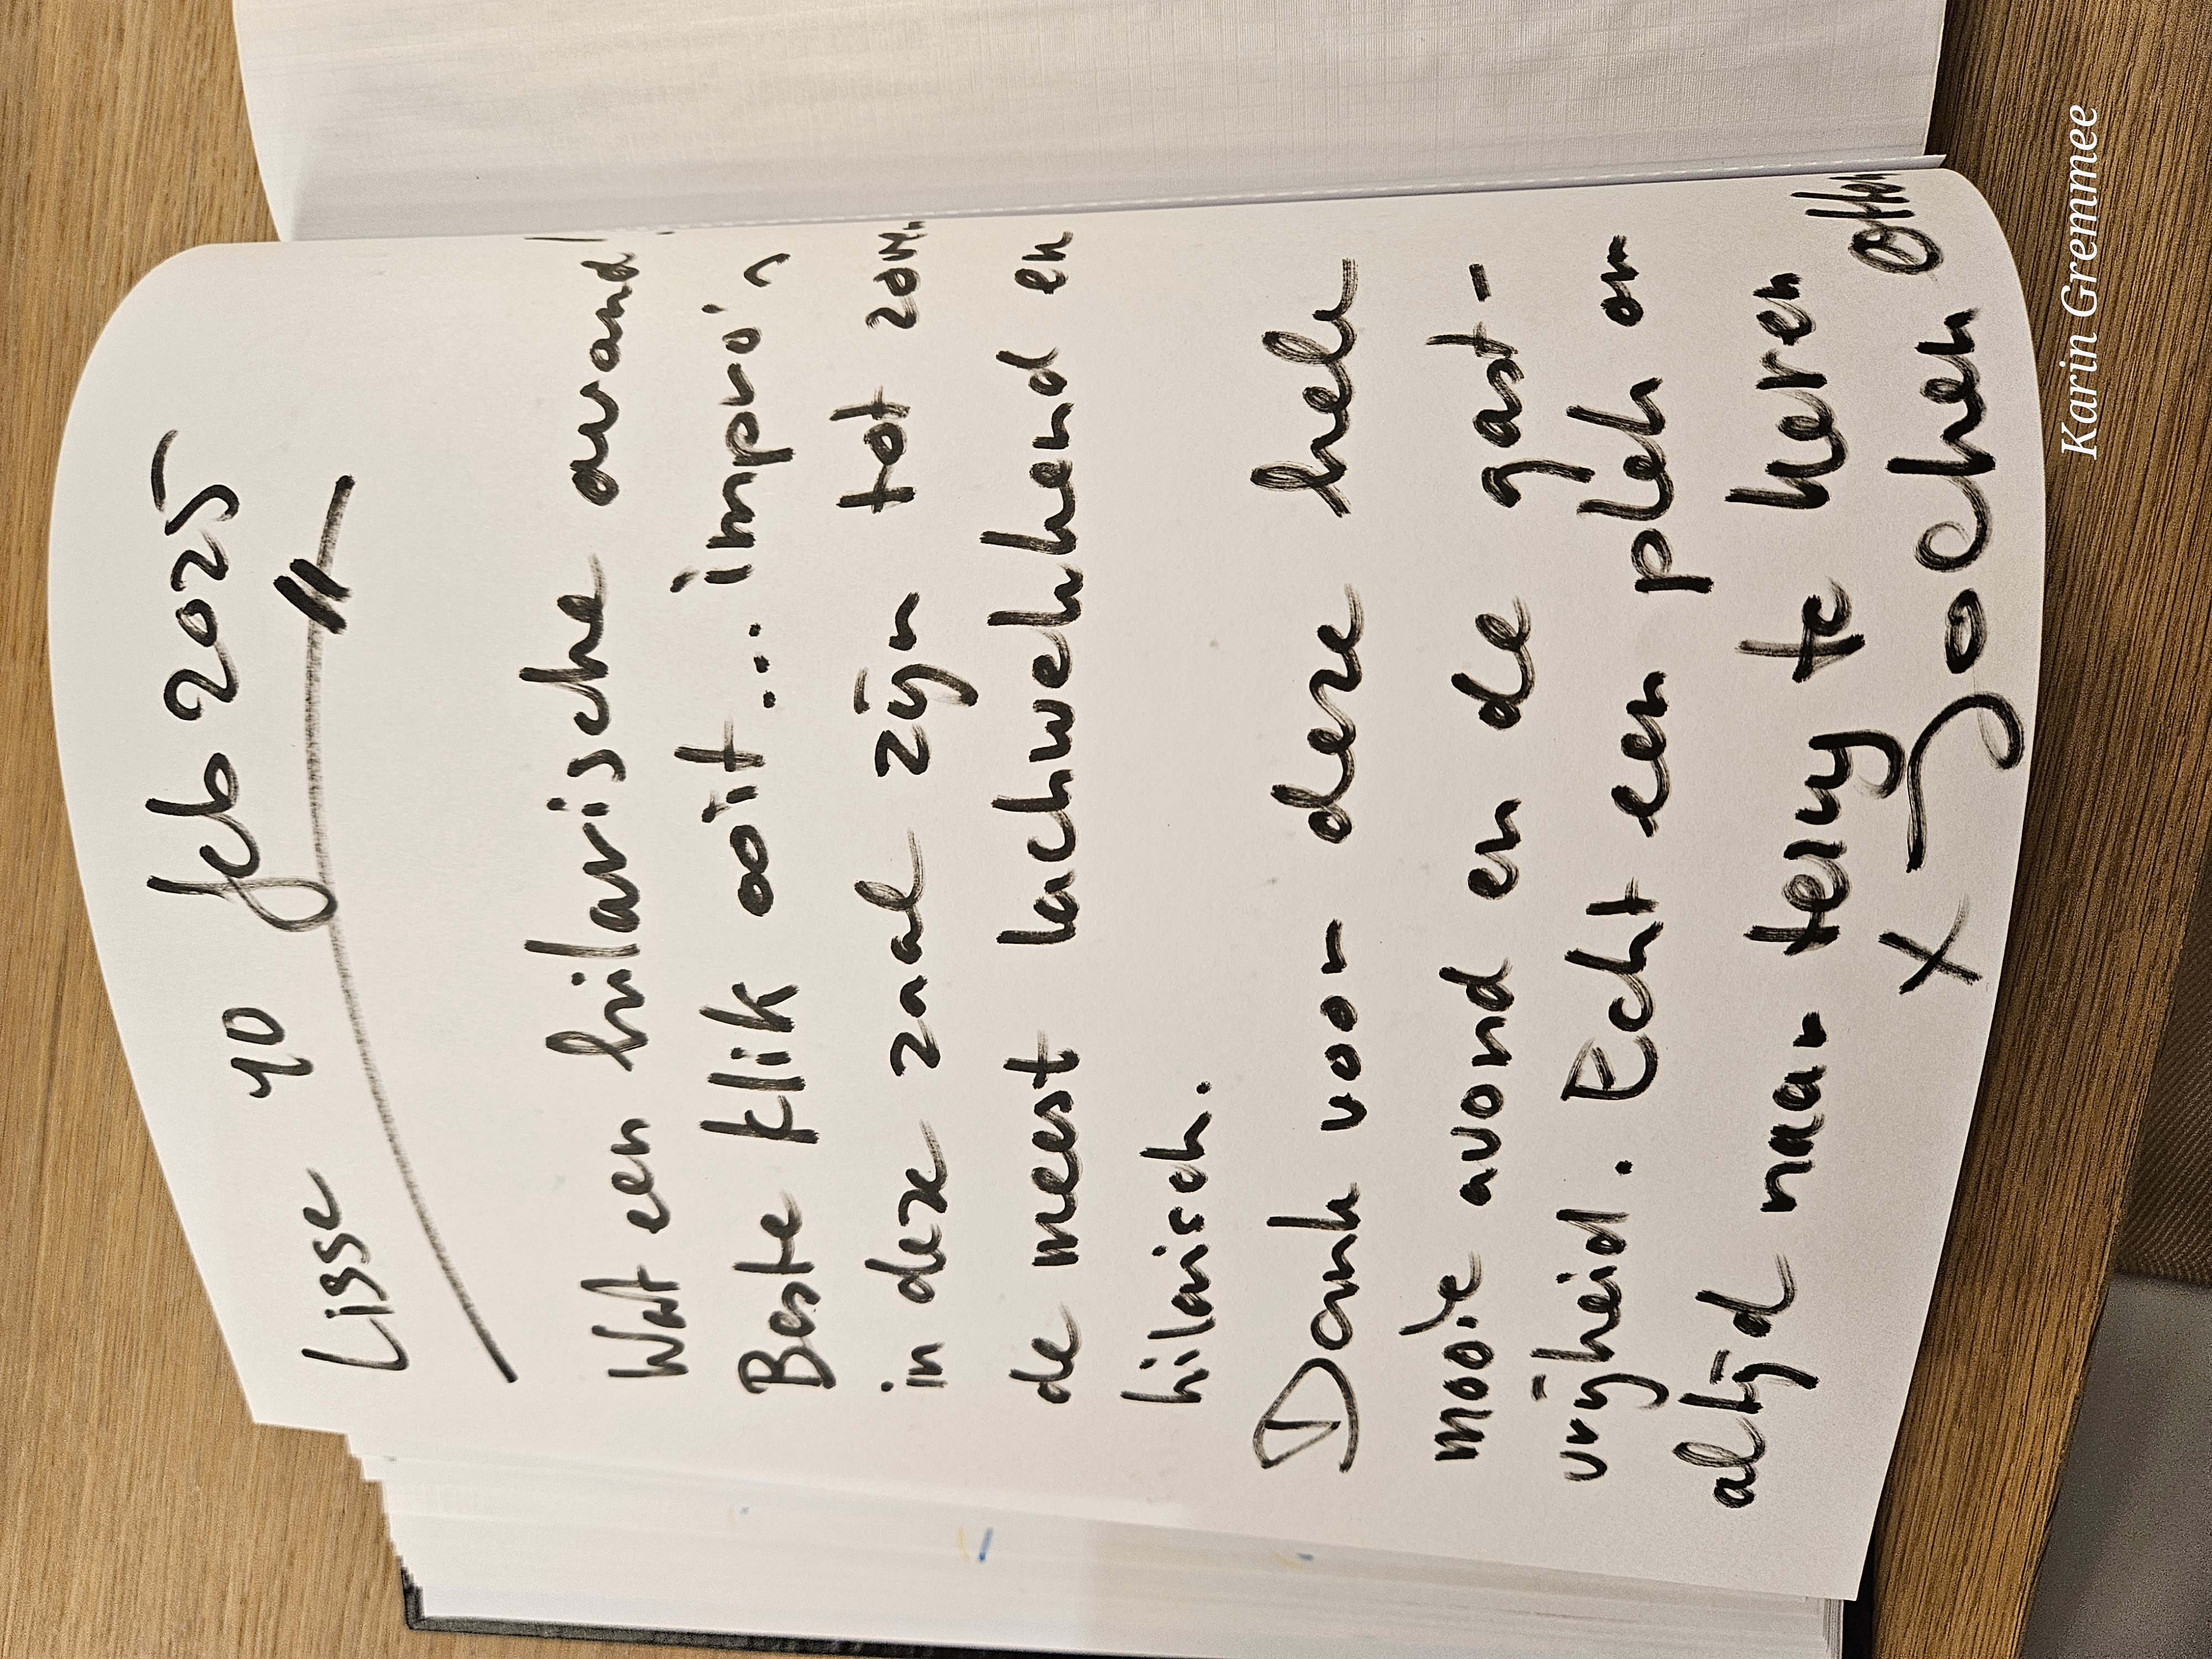 Lisse 40 feb 2025
Wat een hilarische avond!
Beste klik ooit... impro's
in deze zaal zijn tot
de meest lachwekkend en
hilarisch.
Dank voor deze hele
mooie avond en de gast-
vrijheid. Echt een plek om
altijd naar terug te keren
X Jochen Otten
Karin Gremmee